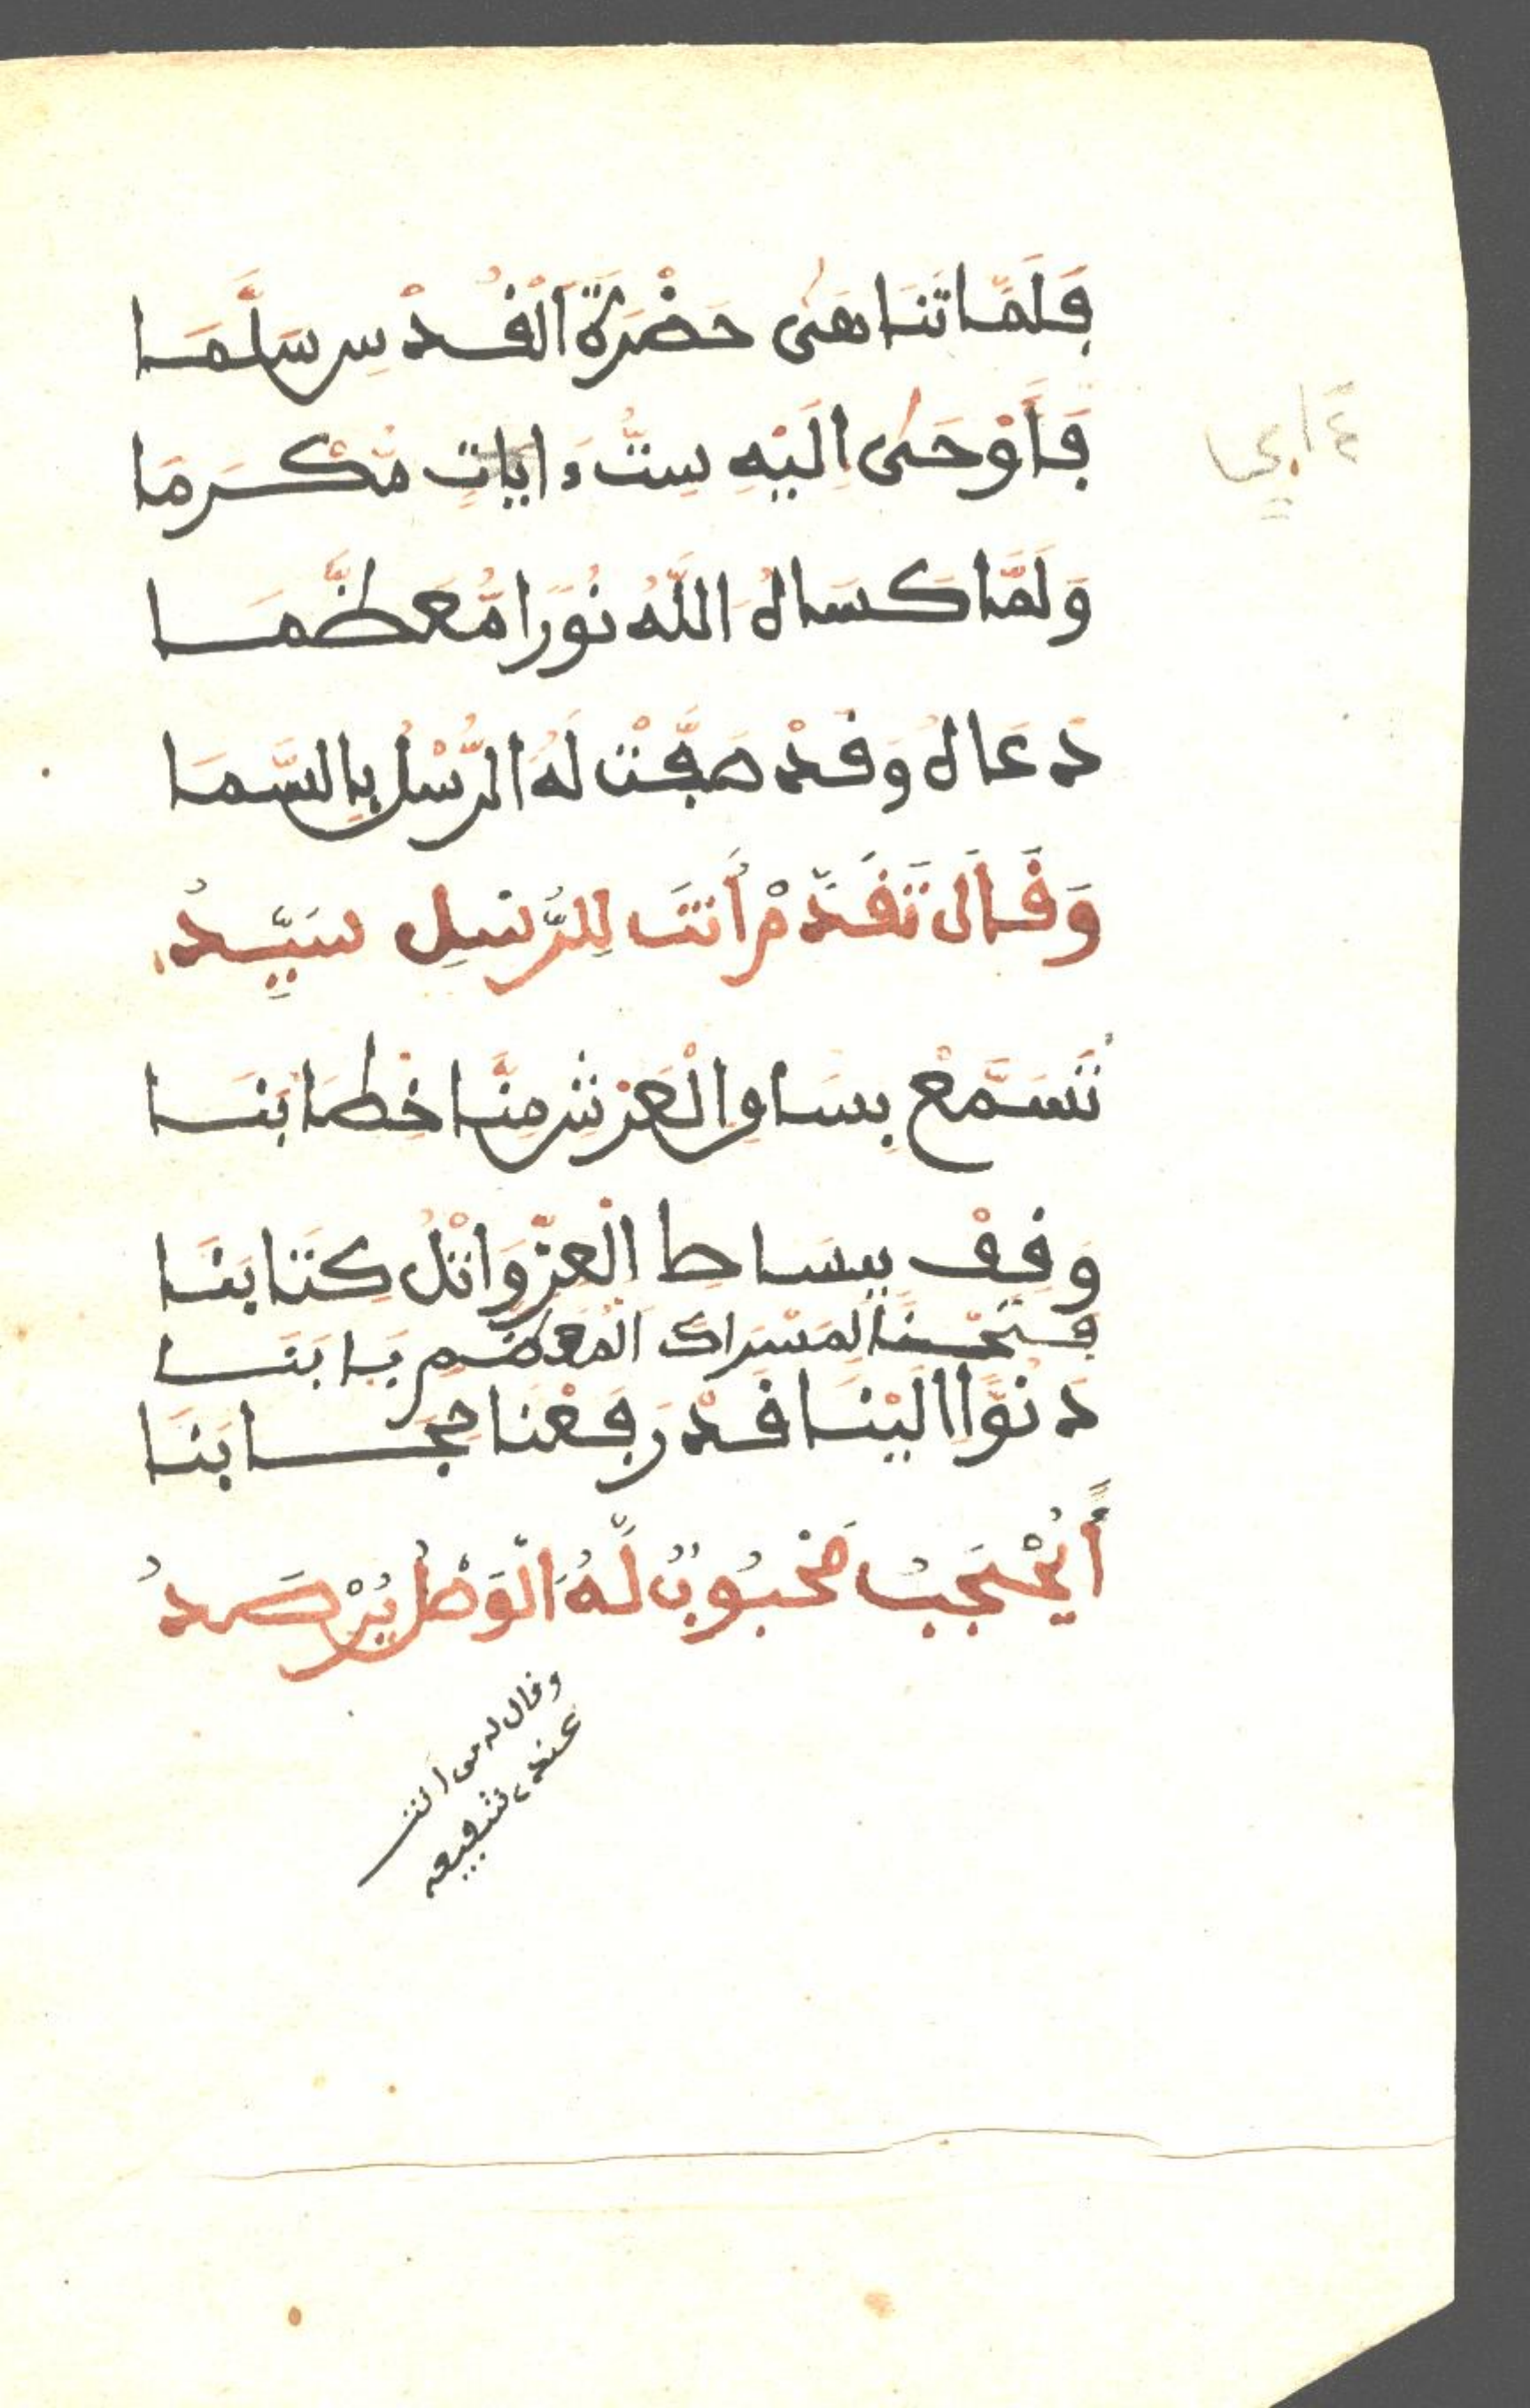 فَلَمَّا تَنَاهَىٰ حَضْرَةَ الْقُدْسِ سَلَّمَا
فَأَوْحَىٰ إِلَيْهِ سِتَّ ءَايَاتٍ مُّكْرَمَا
وَلَمَّا كَسَاهُ اللَّهُ نُورًا مُّعَظَّمَا
دَعَاهُ وَقَدْ صَفَّتْ لَهُ الرُّسْلُ بِالسَّمَا
وَقَالَ تَقَدَّمْ أَنتَ لِلرُّسْلِ سَيِّدُ
تَسَمَّعْ بِسَاوِ الْعَرْشِ مِنَّا خِطَابَنَا
وَقِفْ بِبِسَاطِ الْعِزِّ وَاتْلُ كِتَابَنَا
فَتَحْنَا لِمَسْرَاكَ الْمُعَظَّمِ بَابَنَا
دَنُوًّا إِلَيْنَا قَدْ رَفَعْنَا حِجَابَنَا
أَيُحْجَبُ مَحْبُوبٌ لَّهُ الْوَصْلُ يُرْصَدُ
وقال له من أنت
عنده شفيعه